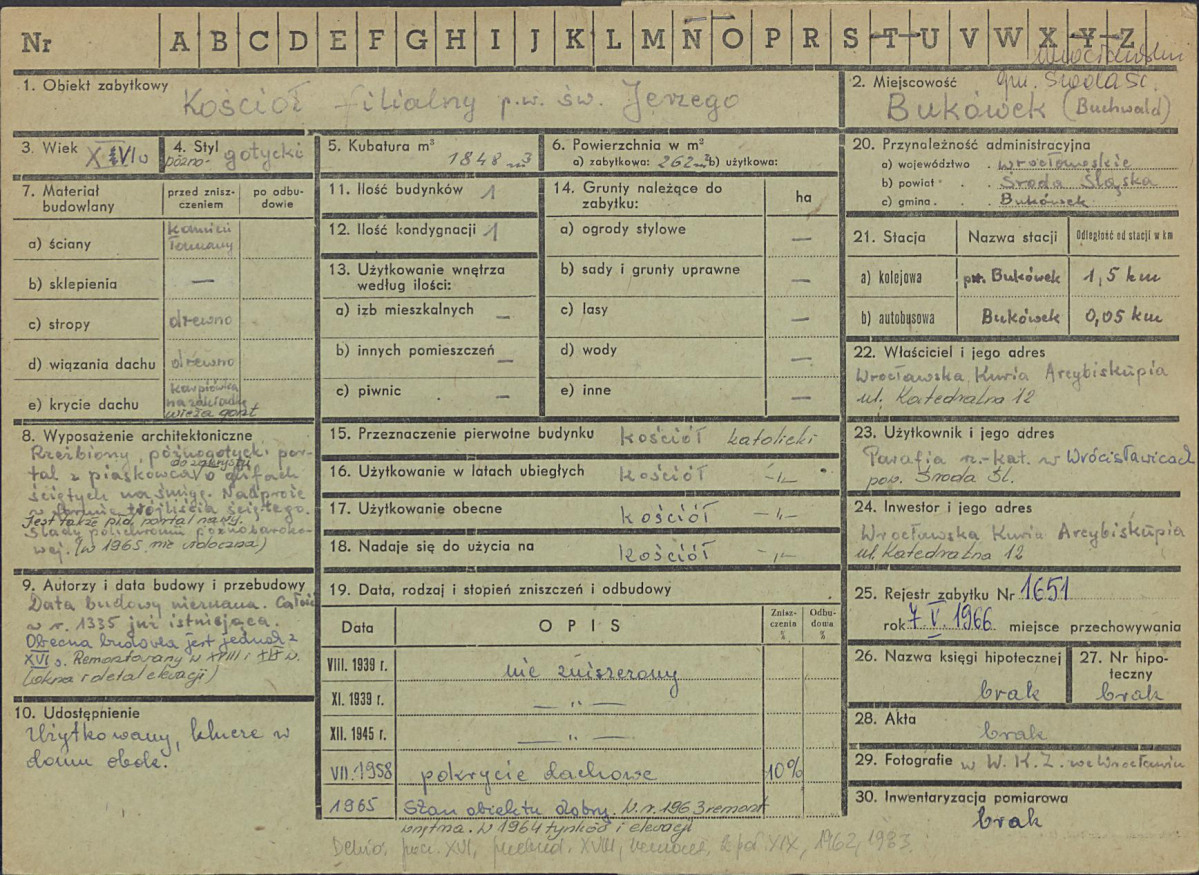 Nr A B C D E F G H I J K L M N O P R S T U V W X Y Z
1. Obiekt zabytkowy
Kościół filialny p.w. św. Jerzego
2. Miejscowość gm. Środa Śl.
Bukówek (Buchwald)
3. Wiek XVI
4. Styl
późno-gotycki
5. Kubatura m³
1848 m3
6. Powierzchnia w m²
a) zabytkowa: 262 m² b) użytkowa:
7. Materiał budowlany
przed zniszczeniem
po odbudowie
a) ściany kamień łamany
b) sklepienia —
c) stropy drewno
d) wiązania dachu drewno
e) krycie dachu karpiówka na zakładkę
wieża gont
8. Wyposażenie architektoniczne
Rzeźbiony, późnogotycki por-
tal do zakrystii z piaskowca o glifach
ściętych na śmigę. Nadproże
w formie trójliścia ściętego.
Jest także płd. portal nawy.
Ślady polichromii późnobaroko-
wej. (w 1965 nie widoczna)
9. Autorzy i data budowy i przebudowy
Data budowy nieznana. Całość
w r. 1335 już istniejąca.
Obecna budowla jest jednak z
XVI w. Remontowany w XVIII i XIX w.
(okna i detal elewacji)
10. Udostępnienie
Użytkowany, klucze w
domu obok.
11. Ilość budynków 1
12. Ilość kondygnacji 1
13. Użytkowanie wnętrza
według ilości:
a) izb mieszkalnych —
b) innych pomieszczeń —
c) piwnic —
14. Grunty należące do
zabytku:
ha
a) ogrody stylowe —
b) sady i grunty uprawne —
c) lasy —
d) wody —
e) inne —
15. Przeznaczenie pierwotne budynku kościół katolicki
16. Użytkowanie w latach ubiegłych kościół -„-
17. Użytkowanie obecne kościół -„-
18. Nadaje się do użycia na kościół -„-
19. Data, rodzaj i stopień zniszczeń i odbudowy
Data OPIS Zniszczenia % Odbudowa %
VIII. 1939 r. nie zniszczony
XI. 1939 r. — „ —
XII. 1945 r. — „ —
VII. 1958 pokrycie dachowe 10%
1965 Stan obiektu dobry. W r. 1963 remont
wnętrza. W 1964 tynków i elewacji
Dehio, pocz. XVI, przebud. XVIII, 2 poł. XIX, 1962, 1983.
20. Przynależność administracyjna
a) województwo . Wrocławskie
b) powiat . . Środa Śląska
c) gmina . . Bukówek
21. Stacja Nazwa stacji Odległość od stacji w km
a) kolejowa Bukówek 1,5 km
b) autobusowa Bukówek 0,05 km
22. Właściciel i jego adres
Wrocławska Kuria Arcybiskupia
ul. Katedralna 12
23. Użytkownik i jego adres
Parafia rz.-kat. w Wrócisławicach
pow. Środa Śl.
24. Inwestor i jego adres
Wrocławska Kuria Arcybiskupia
ul. Katedralna 12
25. Rejestr zabytku Nr 1651
rok 7 V. 1966 miejsce przechowywania
26. Nazwa księgi hipotecznej
brak
27. Nr hipoteczny
brak
28. Akta
brak
29. Fotografie w W. K. Z. we Wrocławiu
30. Inwentaryzacja pomiarowa
brak